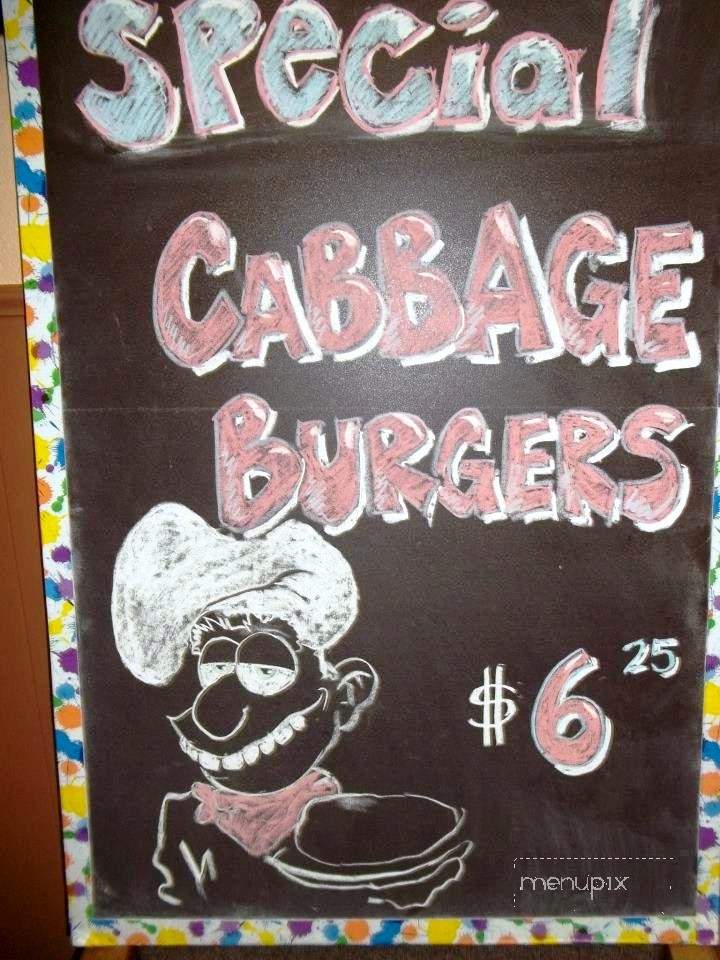 Special
CABBAGE
BURGERS
$6 25
menupix